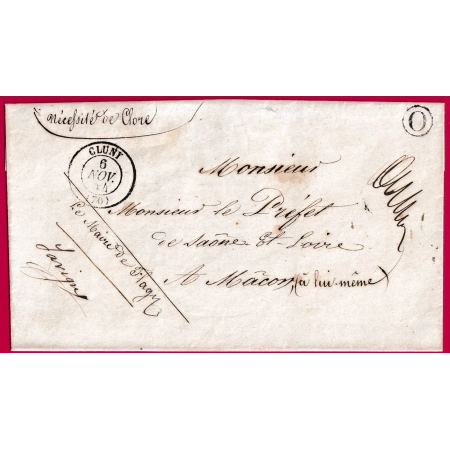 Nécessité de Clore
O
CLUNY
6
NOV.
(70)
Monsieur
Monsieur le Préfet
de Saône Et Loire
A Mâcon, (à lui-même)
Le Maire de Flagy